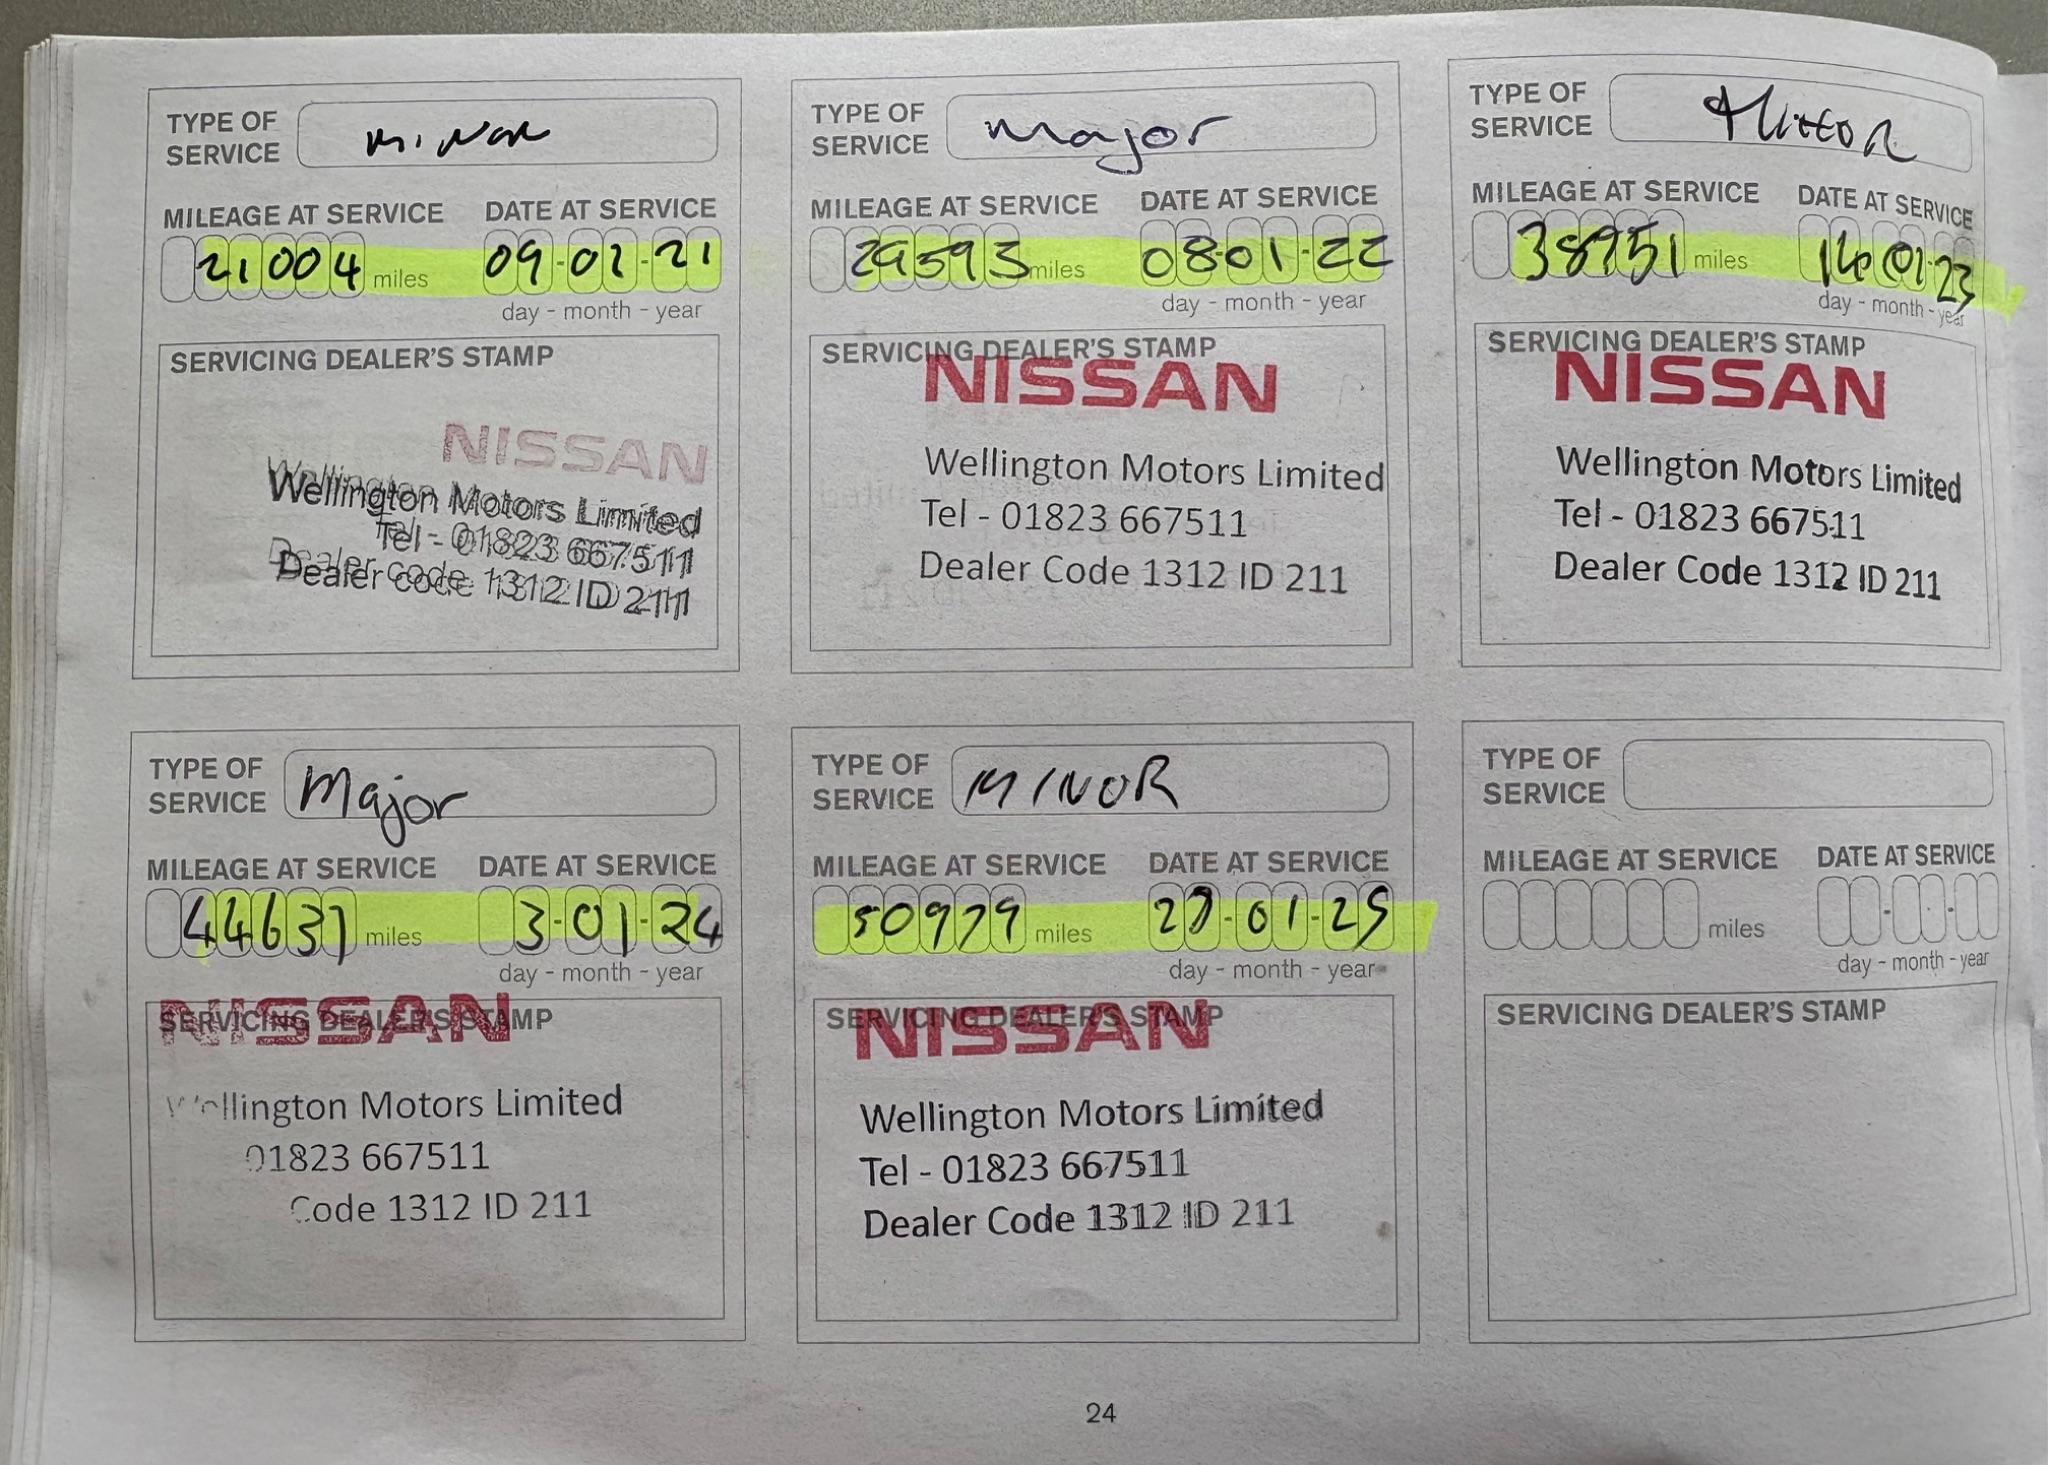 TYPE OF SERVICE minor
MILEAGE AT SERVICE DATE AT SERVICE
21004 miles 09-02-21
day - month - year
SERVICING DEALER'S STAMP
NISSAN
Wellington Motors Limited
Tel - 01823 667511
Dealer code 1312 ID 211
TYPE OF SERVICE Major
MILEAGE AT SERVICE DATE AT SERVICE
29593 miles 08-01-22
day - month - year
SERVICING DEALER'S STAMP
NISSAN
Wellington Motors Limited
Tel - 01823 667511
Dealer Code 1312 ID 211
TYPE OF SERVICE
MILEAGE AT SERVICE DATE AT SERVICE
miles
day - month - year
SERVICING DEALER'S STAMP
NISSAN
Wellington Motors Limited
Tel - 01823 667511
Dealer Code 1312 ID 211
TYPE OF SERVICE Major
MILEAGE AT SERVICE DATE AT SERVICE
44637 miles 3-01-24
day - month - year
SERVICING DEALER'S STAMP
NISSAN
Wellington Motors Limited
01823 667511
Code 1312 ID 211
TYPE OF SERVICE MINOR
MILEAGE AT SERVICE DATE AT SERVICE
50979 miles
day - month - year
SERVICING DEALER'S STAMP
NISSAN
Wellington Motors Limited
Tel - 01823 667511
Dealer Code 1312 ID 211
TYPE OF SERVICE
MILEAGE AT SERVICE DATE AT SERVICE
miles
day - month - year
SERVICING DEALER'S STAMP
24